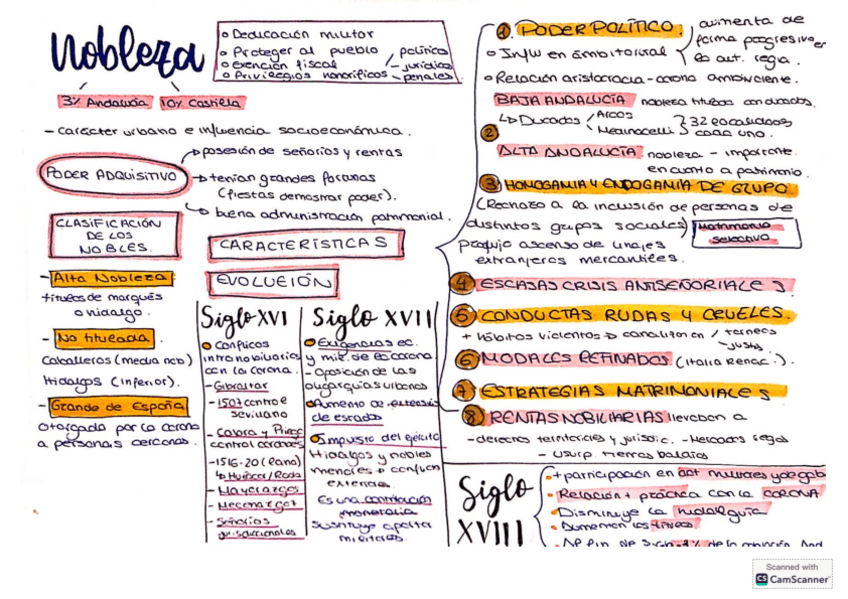 Nobleza
o Dedicación militar
o Proteger al pueblo
o Exención fiscal
o Privilegios honoríficos
políticos
jurídicos
penales
3% Andalucía 10% Castilla
- carácter urbano e influencia socioeconómica.
PODER ADQUISITIVO
posesión de señoríos y rentas
tenían grandes fortunas
(fiestas demostrar poder).
buena administración patrimonial.
CLASIFICACIÓN
DE LOS
NOBLES.
- Alta Nobleza
títulos de marqués
o hidalgo.
- No titulada
Caballeros (media nob)
Hidalgos (inferior).
- Grande de España
otorgada por la corona
a personas cercanas.
CARACTERÍSTICAS
EVOLUCIÓN
Siglo XVI
Conflictos
intranobiliarios
con la corona.
- Gibraltar
- 1507 contra
sevillano
control
- 1516-20
- Mayorazgos
- Señoríos
jurisdiccionales
Siglo XVII
Exigencias ec.
y mil. de la corona.
- oposición de las
oligarquías urbanas
Aumento de
de estados
Impuesto del ejército
Hidalgos y nobles
menores
externos
Es una contribución
monetaria
sustituye
militares.
1 PODER POLÍTICO.
aumenta de
forma progresiva en
la aut. regia.
o Influy en ámbito rural
o Relación aristocracia - corona ambivalente.
BAJA ANDALUCÍA nobleza titulada con ducados.
2
Ducados
Arcos
Medinaceli
32 localidades
cada uno.
ALTA ANDALUCÍA nobleza - importante
en cuanto a patrimonio.
3 HOMOGAMIA Y ENDOGAMIA DE GRUPO
(Rechazo a la inclusión de personas de
distintos grupos sociales)
Matrimonio
selectivo
produjo ascenso de linajes
extranjeros mercantiles.
4 ESCASAS CRISIS ANTISEÑORIALES
5 CONDUCTAS RUDAS Y CRUELES.
+ hábitos violentos → canalizar en
torneos
justas
6 MODALES REFINADOS (Italia Renac.).
7 ESTRATEGIAS MATRIMONIALES
8 RENTAS NOBILIARIAS llevaban a
- derechos territoriales y jurisdic. - Mercados
- usurp. tierras baldías
Siglo
XVIII
+ participación en act militares y de gob
Relación + práctica con la CORONA
Disminuye la hidalguía
Aumentan los títulos
Scanned with
CS CamScanner